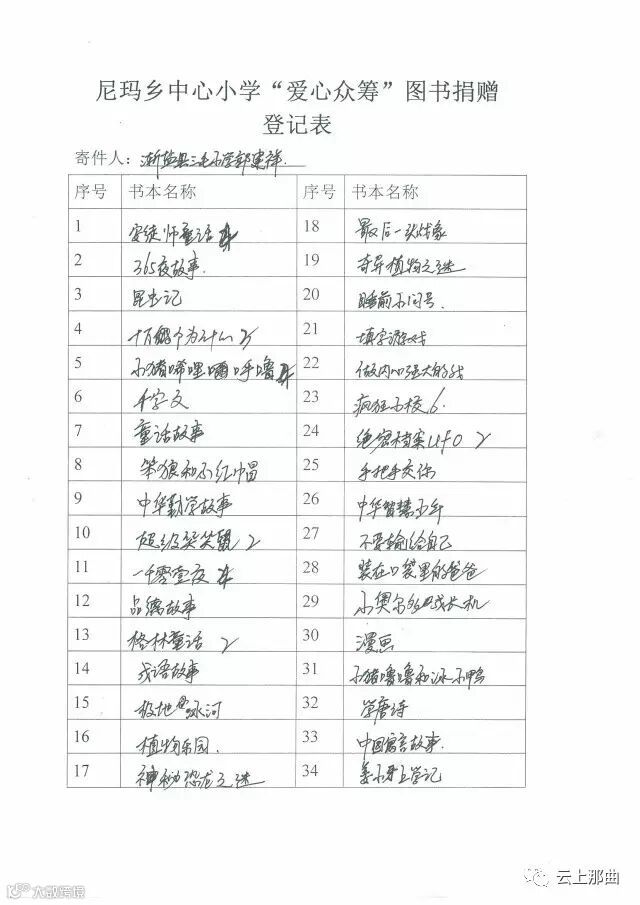 尼玛乡中心小学“爱心众筹”图书捐赠
登记表
寄件人:
序号 书本名称 序号 书本名称
1 安徒师童话 4 18 最后一头战象
2 365夜故事. 19 奇异植物之迷
3 昆虫记 20 睡前小问号.
4 十万个为什么 21 填字游戏
5 小猪唏哩呼噜 22 做内心强大的我
6 千字文 23 疯狂小校 6.
7 童话故事 24 绝密档案UFO 2
8 笨狼和小红帽 25 手把手交你
9 中华勤学故事 26 中华智慧少年
10 超级笑笑鼠 2 27 不要输给自己
11 一千零壹夜 4 28 装在口袋里的爸爸
12 品德故事 29 小奥尔的成长机
13 格林童话 2 30 漫画
14 成语故事 31 小猪噜噜和泳小鸭
15 极地冰河 32 学唐诗
16 植物乐园. 33 中国寓言故事.
17 神秘恐龙之迷 34 上学记
大数跨境
云上那曲